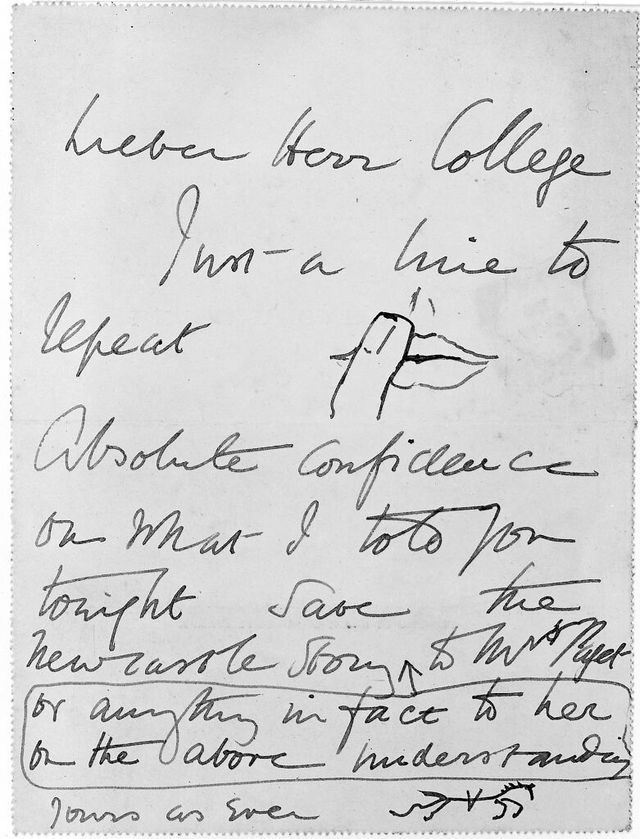 Lieber Herr College
Just a line to
repeat
Absolute confidence
on what I told you
tonight save the
Newcastle Story to Mrs Paget
or anything in fact to her
on the above understanding
Yours as Ever